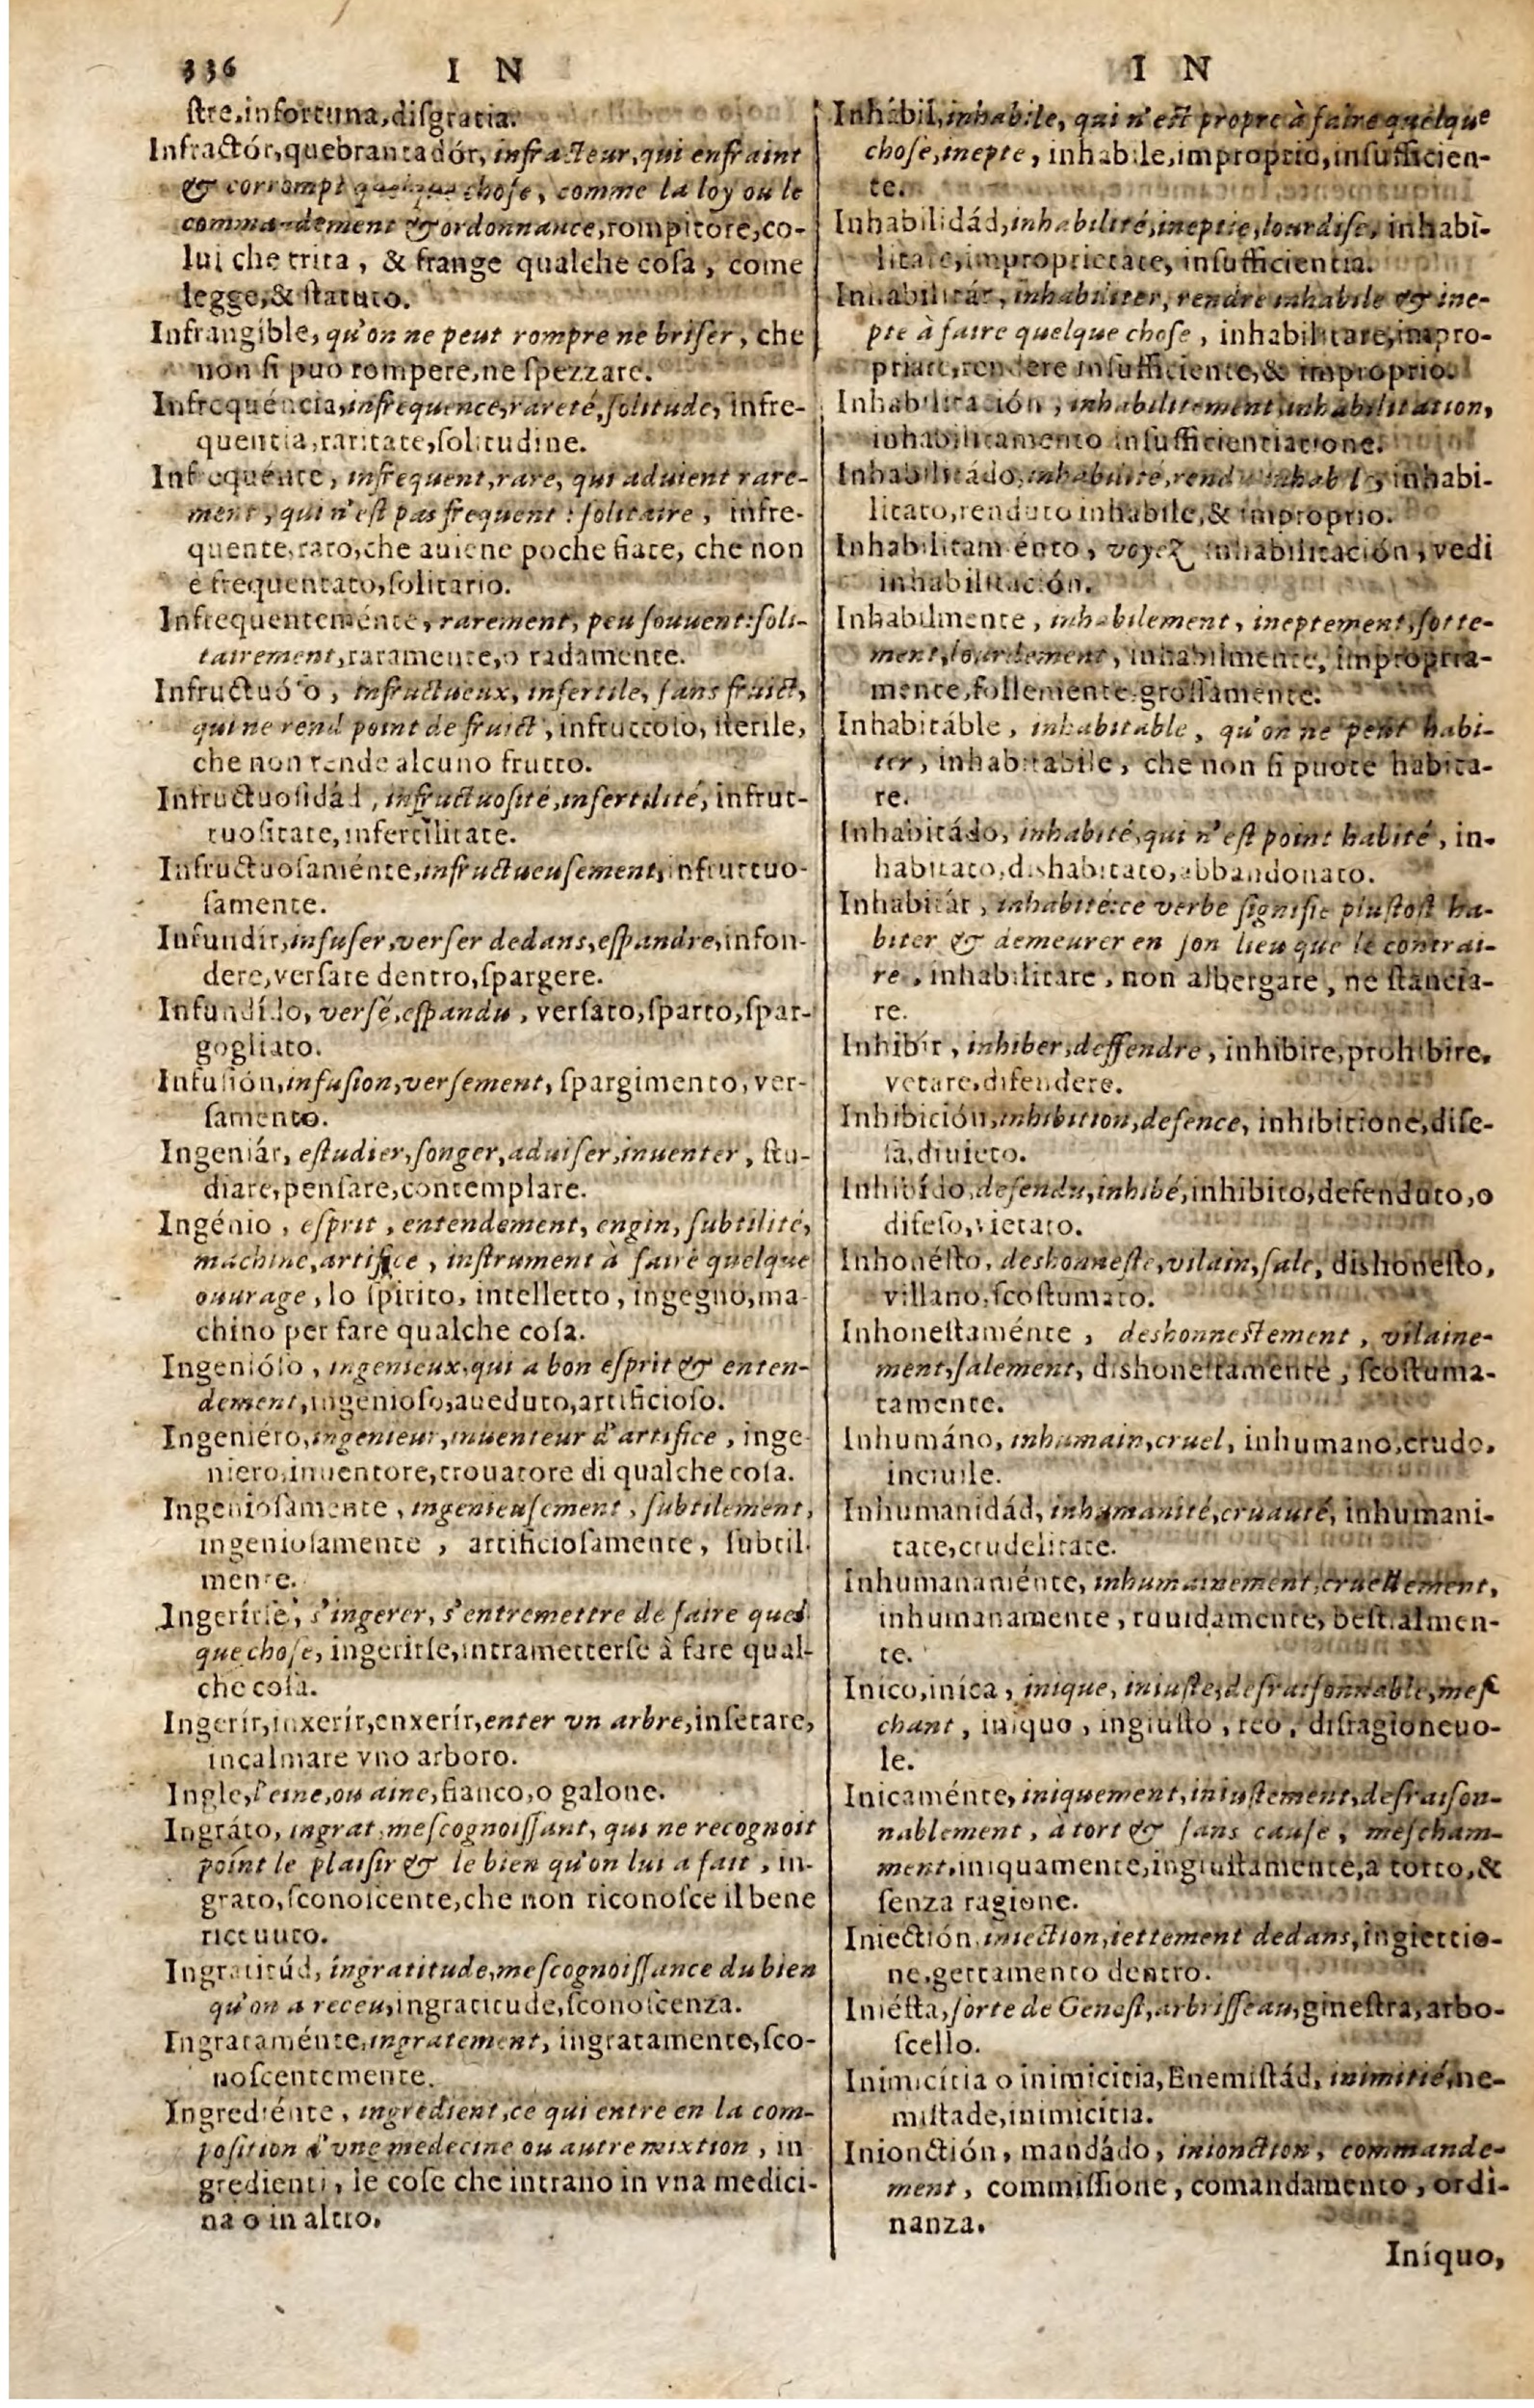 336 I N
ſtre, infortuna, diſgratia.
Infractór, quebrantadór, infracteur, qui enfraint
& corrompt quelque choſe, comme la loy ou le
commandement & ordonnance, rompitore, co-
lui che trita, & frange qualche coſa, come
legge, & ſtatuto.
Infrangible, qu'on ne peut rompre ne briſer, che
non ſi può rompere, ne ſpezzare.
Infrequéncia, infrequence, rareté, ſolitude, infre-
quentia, raritate, ſolitudine.
Infrequénte, infrequent, rare, qui aduient rare-
ment, qui n'eſt pas frequent: ſolitaire, infre-
quente, raro, che auiene poche fiate, che non
è frequentato, ſolitario.
Infrequenteménte, rarement, peu ſouuent: ſoli-
tairement, raramente, o radamente.
Infructuóſo, infructueux, infertile, ſans fruict,
qui ne rend point de fruict, infruttoſo, ſterile,
che non rende alcuno frutto.
Infructuoſidád, infructuoſité, infertilité, infrut-
tuoſitate, infertilitate.
Infructuoſaménte, infructueuſement, infruttuo-
ſamente.
Infundír, infuſer, verſer dedans, eſpandre, infon-
dere, verſare dentro, ſpargere.
Infundído, verſé, eſpandu, verſato, ſparto, ſpar-
gogliato.
Infuſión, infuſion, verſement, ſpargimento, ver-
ſamento.
Ingeniár, eſtudier, ſonger, aduiſer, inuenter, ſtu-
diare, penſare, contemplare.
Ingénio, eſprit, entendement, engin, ſubtilité,
machine, artifice, inſtrument à faire quelque
ouurage, lo ſpirito, intelletto, ingegno, ma-
chino per fare qualche coſa.
Ingenióſo, ingenieux, qui a bon eſprit & enten-
dement, ingenioſo, aueduto, artificioſo.
Ingeniéro, ingenieur, inuenteur d'artifice, inge-
niero, inuentore, trouatore di qualche coſa.
Ingenioſamente, ingenieuſement, ſubtilement,
ingenioſamente, artificioſamente, ſubtil-
mente.
Ingerírſe, s'ingerer, s'entremettre de faire quel
que choſe, ingerirſe, intrametterſe à fare qual-
che coſa.
Ingerír, inxerír, enxerír, enter vn arbre, inſetare,
incalmare vno arboro.
Ingle, l'eine, ou aine, fianco, o galone.
Ingráto, ingrat, meſcognoiſſant, qui ne recognoit
point le plaiſir & le bien qu'on lui a fait, in-
grato, ſconoſcente, che non riconoſce il bene
riceuuto.
Ingratitúd, ingratitude, meſcognoiſſance du bien
qu'on a receu, ingratitude, ſconoſcenza.
Ingrataménte, ingratement, ingratamente, ſco-
noſcentemente.
Ingrediénte, ingredient, ce qui entre en la com-
poſition d'vne medecine ou autre mixtion, in
gredienti, le coſe che intrano in vna medici-
na o in altro.
I N
Inhábil, inhabile, qui n'eſt propre à faire quelque
choſe, inepte, inhabile, improprio, inſufficien-
te.
Inhabilidád, inhabilité, ineptie, lourdiſe, inhabi-
litate, improprietate, inſufficientia.
Inhabilitár, inhabiliter, rendre inhabile & ine-
pte à faire quelque choſe, inhabilitare, impro-
priare, rendere inſufficiente, & improprio.
Inhabilitación, inhabilitement, inhabilitation,
inhabilitamento inſufficientiatione.
Inhabilitádo, inhabilité, rendu inhabile, inhabi-
litato, renduto inhabile, & improprio.
Inhabilitamiénto, voyez inhabilitación, vedi
inhabilitación.
Inhabilmente, inhabilement, ineptement, ſotte-
ment, lourdement, inhabilmente, impropria-
mente, follemente, groſſamente.
Inhabitáble, inhabitable, qu'on ne peut habi-
ter, inhabitabile, che non ſi puote habita-
re.
Inhabitádo, inhabité, qui n'eſt point habité, in-
habitato, dishabitato, abbandonato.
Inhabitár, inhabité: ce verbe ſignifie pluſtoſt ha-
biter & demeurer en ſon lieu que le contrai-
re, inhabilitare, non albergare, ne ſtancia-
re.
Inhibír, inhiber, deffendre, inhibire, prohibire,
vetare, difendere.
Inhibición, inhibition, defence, inhibitione, dife-
ſa, diuieto.
Inhibído, defendu, inhibé, inhibito, defenduto, o
difeſo, vietato.
Inhonéſto, deshonneſte, vilain, ſale, dishoneſto,
villano, ſcoſtumato.
Inhoneſtaménte, deshonneſtement, vilaine-
ment, ſalement, dishoneſtamente, ſcoſtuma-
tamente.
Inhumáno, inhumain, cruel, inhumano, crudo,
inciuile.
Inhumanidád, inhumanité, cruauté, inhumani-
tate, crudelitate.
Inhumanaménte, inhumainement, cruellement,
inhumanamente, ruuidamente, beſtialmen-
te.
Inico, inica, inique, iniuſte, deſraiſonnable, meſ-
chant, iniquo, ingiuſto, reo, diſragioneuo-
le.
Inicaménte, iniquement, iniuſtement, deſraiſon-
nablement, à tort & ſans cauſe, meſcham-
ment, iniquamente, ingiuſtamente, a torto, &
ſenza ragione.
Iniectión, iniection, iettement dedans, ingiettio-
ne, gettamento dentro.
Iniéſta, ſorte de Geneſt, arbriſſeau, gineſtra, arbo-
ſcello.
Inimicítia o inimicicia, Enemiſtád, inimitié, ne-
miſtade, inimicitia.
Inionctión, mandádo, inionction, commande-
ment, commiſſione, comandamento, ordi-
nanza.
Iníquo,